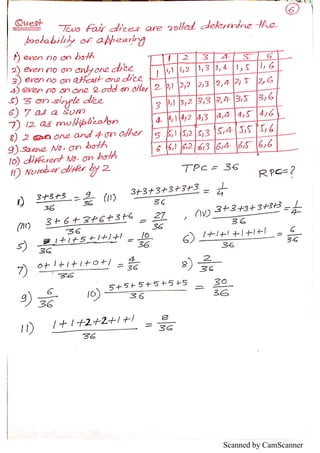 6
Quest Two Fair dices are rolled determine the
probability of appearing
1) even no on both
2) even no on only one dice
3) even no on atleast one dice
4) even no on one & odd on other
5) 3 on single dice
6) 7 as a sum
7) 12 as multiplication
8) 2 on one and 4 on other
9) same No. on both
10) different No. on both
11) Number differ by 2
1 2 3 4 5 6
1 1,1 1,2 1,3 1,4 1,5 1,6
2 2,1 2,2 2,3 2,4 2,5 2,6
3 3,1 3,2 3,3 3,4 3,5 3,6
4 4,1 4,2 4,3 4,4 4,5 4,6
5 5,1 5,2 5,3 5,4 5,5 5,6
6 6,1 6,2 6,3 6,4 6,5 6,6
TPC = 36 RPC=?
1) 3+3+3/36 = 9/36 (11) 3+3+3+3+3+3/36 = 1/4
(111) 3+6+3+6+3+6/36 = 27/36 , (1V) 3+3+3+3+3+3/36 = 1/4
5) 1+1+5+1+1+1/36 = 10/36 6) 1+1+1+1+1+1/36 = 6/36
7) 0+1+1+1+0+1/36 = 4/36 8) 2/36
9) 6/36 10) 5+5+5+5+5+5/36 = 30/36
11) 1+1+2+2+1+1/36 = 8/36
Scanned by CamScanner